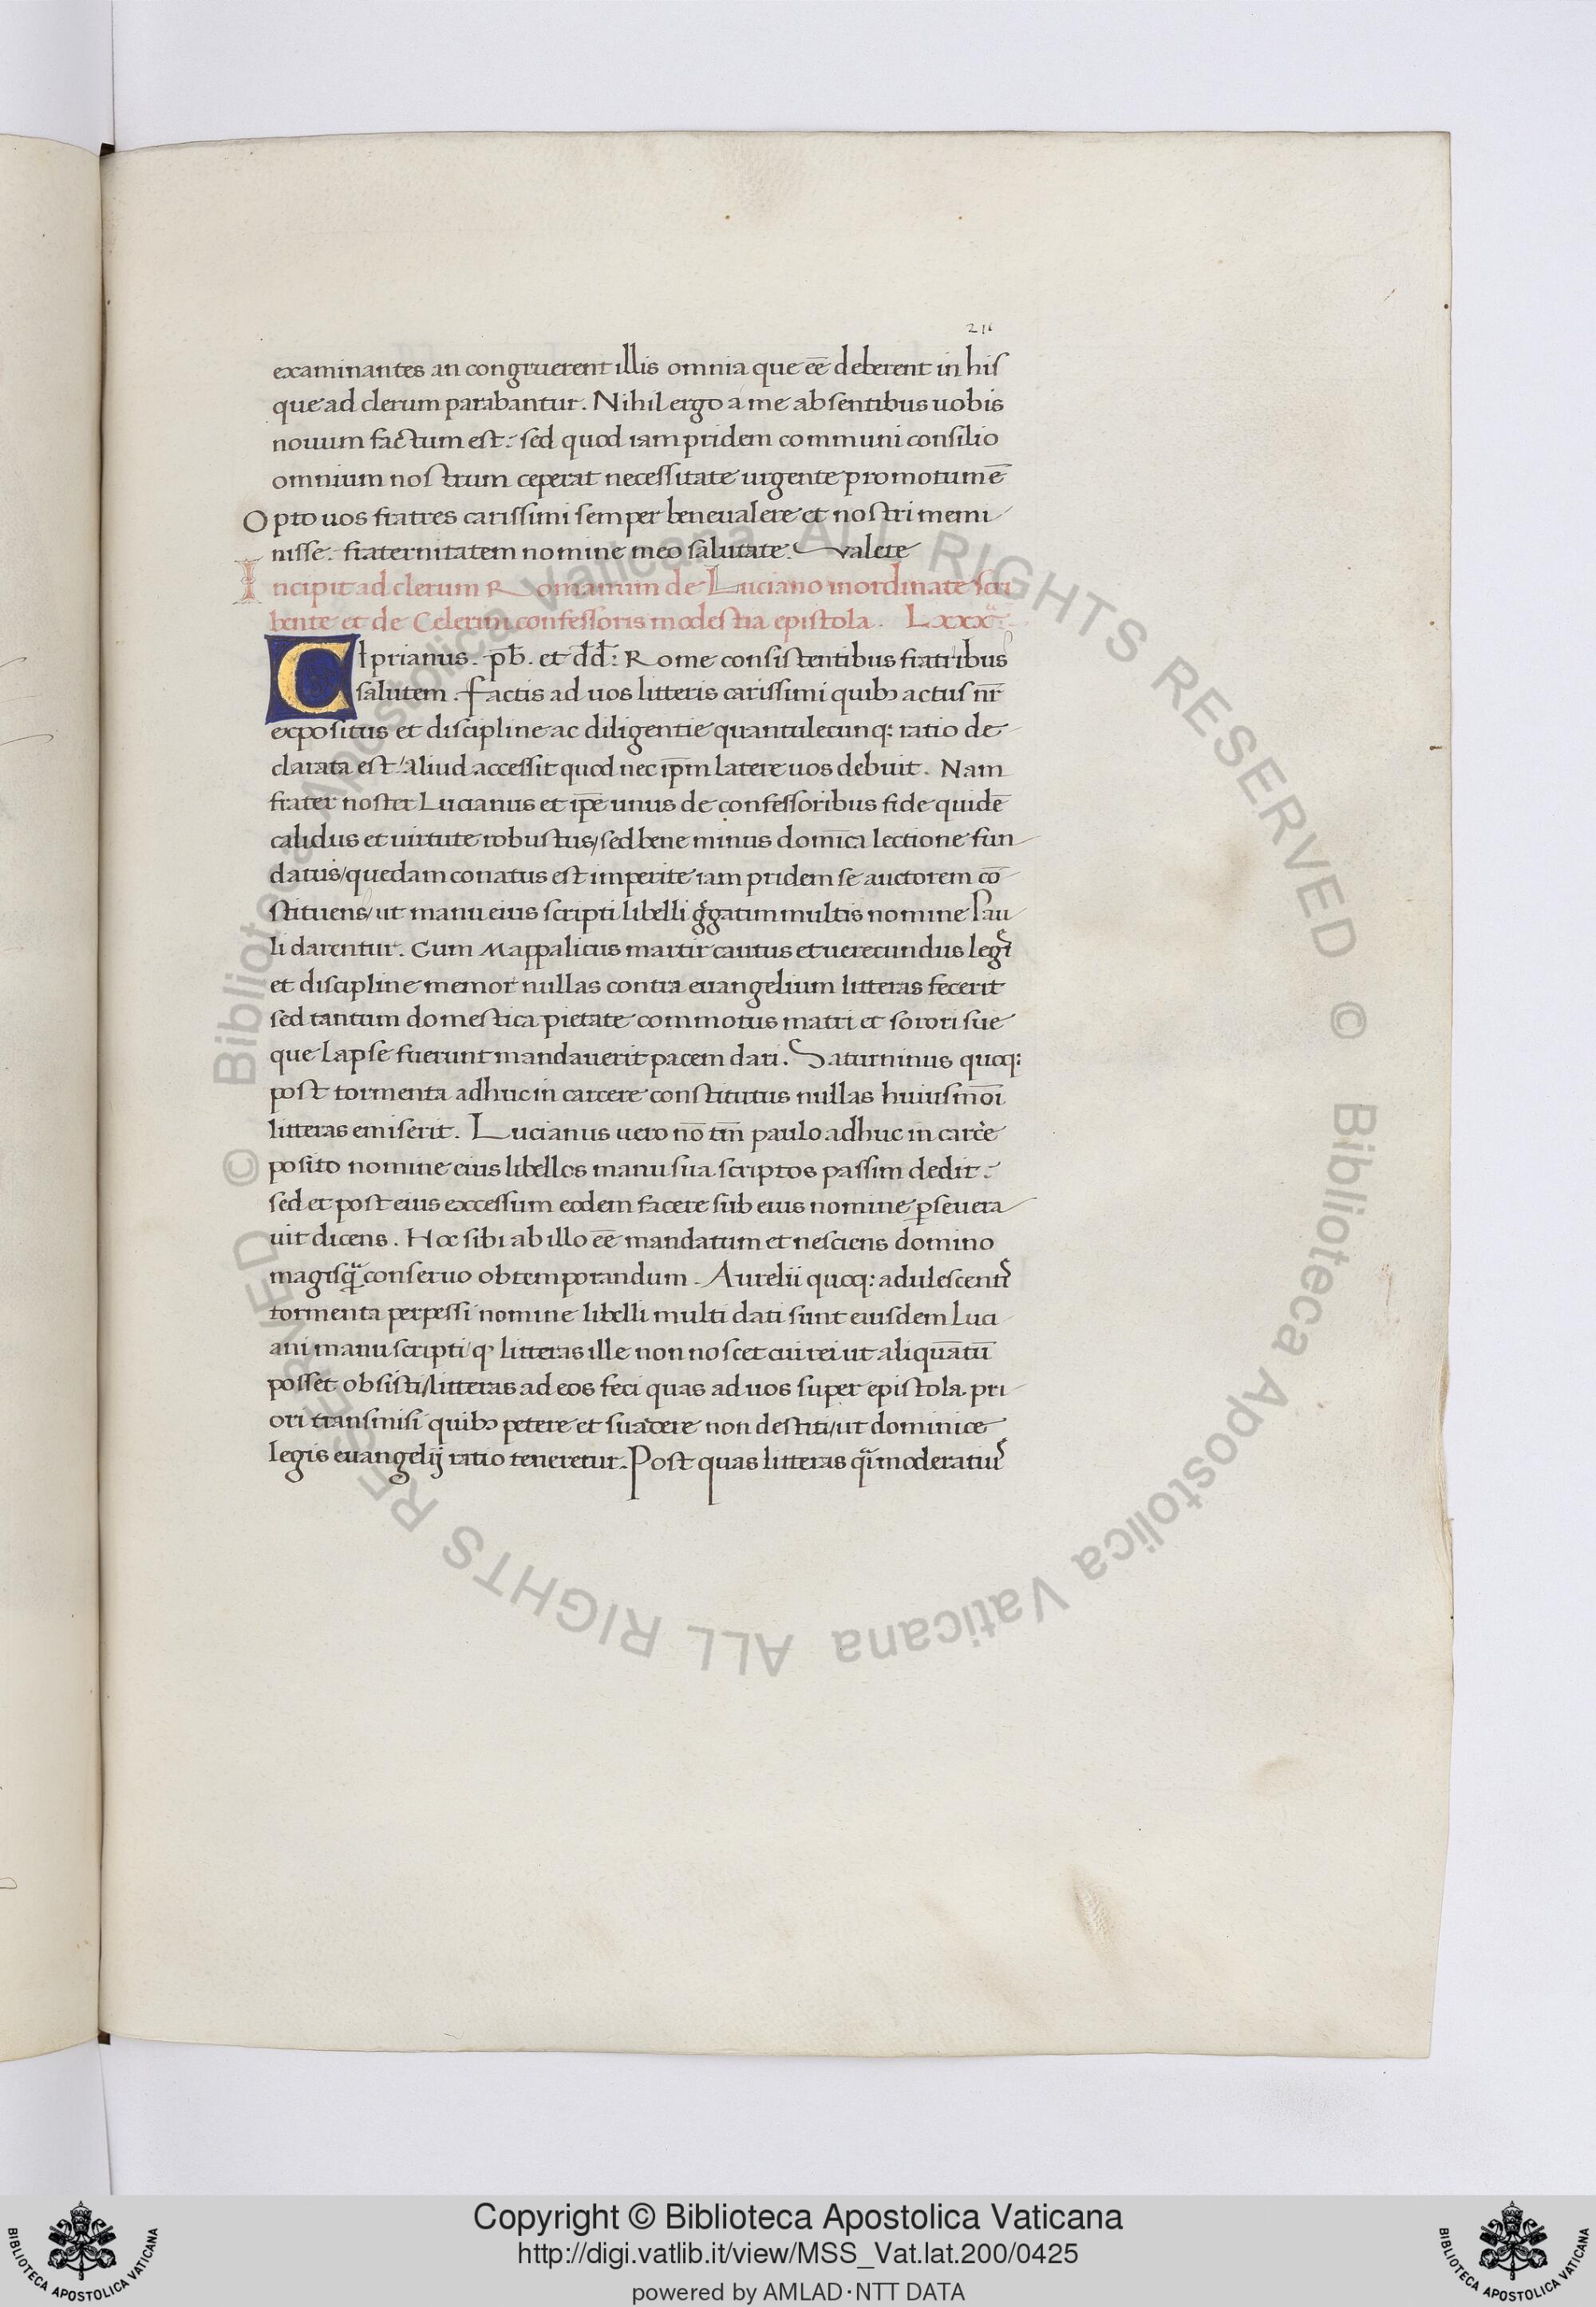 211
examinantes an congruerent illis omnia que eē deberent in his
que ad clerum parabantur. Nihil ergo a me absentibus uobis
nouum factum est: sed quod iam pridem communi consilio
omnium nostrum ceperat necessitate urgente promotum ē
Opto uos fratres carissimi semper bene ualere et nostri memi
nisse. fraternitatem nomine meo salutate. Valete
Incipit ad clerum Romanum de Luciano inordinate scri
bente et de Celerini confessoris modestia epistola. Lxxxª:
CIprianus. p̄b. et d̄d̄: Rome consistentibus fratribus
salutem. Factis ad uos litteris carissimi quibꝫ actus nr̄
expositus et discipline ac diligentie quantulecunq: ratio de
clarata est/ aliud accessit quod nec ip̄m latere uos debuit. Nam
frater noster Lucianus et ip̄e unus de confessoribus fide quidē
calidus et uirtute robustus/ sed bene minus domīca lectione fun
datus/ quedam conatus est imperite iam pridem se auctorem cō
stituens/ ut manu eius scripti libelli g̾gatim multis nomine Pau
li darentur. Cum Mappalicus martir cautus et uerecundus legis
et discipline memor nullas contra euangelium litteras fecerit
sed tantum domestica pietate commotus matri et sorori sue
que lapse fuerunt mandauerit pacem dari. Saturninus quoq:
post tormenta adhuc in carcere constitutus nullas huiusmōi
litteras emiserit. Lucianus uero nō tm̄ paulo adhuc in carce̾
posito nomine eius libellos manu sua scriptos passim dedit:
sed et post eius excessum eodem facere sub eius nomine ꝑseuera
uit dicens. Hoc sibi ab illo eē mandatum et nesciens domino
magisqᷓ conseruo obtemporandum. Aurelii quoq: adulescentis
tormenta perpessi nomine libelli multi dati sunt eiusdem Luci
ani manu scripti/ ꝙ litteras ille non noscet cui rei ut aliquātū
posset obsisti/ litteras ad eos feci quas ad uos super epistola pri
ori transmisi quibꝫ petere et suadere non destiti/ ut dominice
legis euangelij ratio teneretur. Post quas litteras qᷓi moderatius
© Biblioteca Apostolica Vaticana ALL RIGHTS RESERVED © Biblioteca Apostolica Vaticana ALL RIGHTS RESERVED
Copyright © Biblioteca Apostolica Vaticana
http://digi.vatlib.it/view/MSS_Vat.lat.200/0425
powered by AMLAD·NTT DATA
BIBLIOTECA APOSTOLICA VATICANA
BIBLIOTECA APOSTOLICA VATICANA